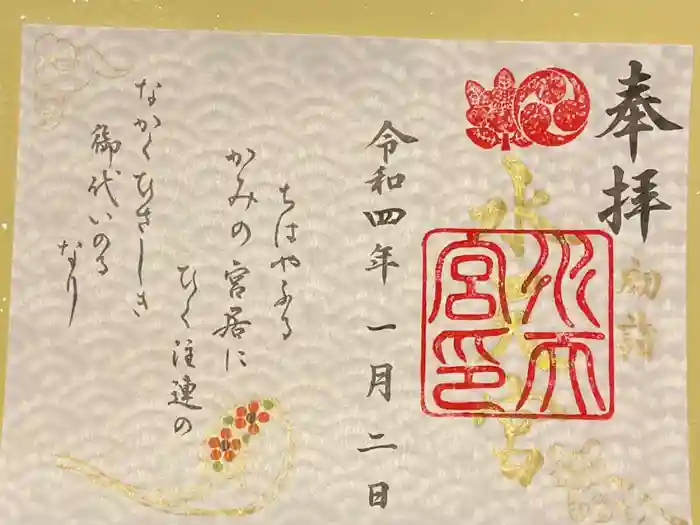 奉拝
初詣
水天宮
水天宮印
令和四年 一月 二日
ちはやふる
かみの宮居に
ひく注連の
なかくひさしき
御代いのる
なり